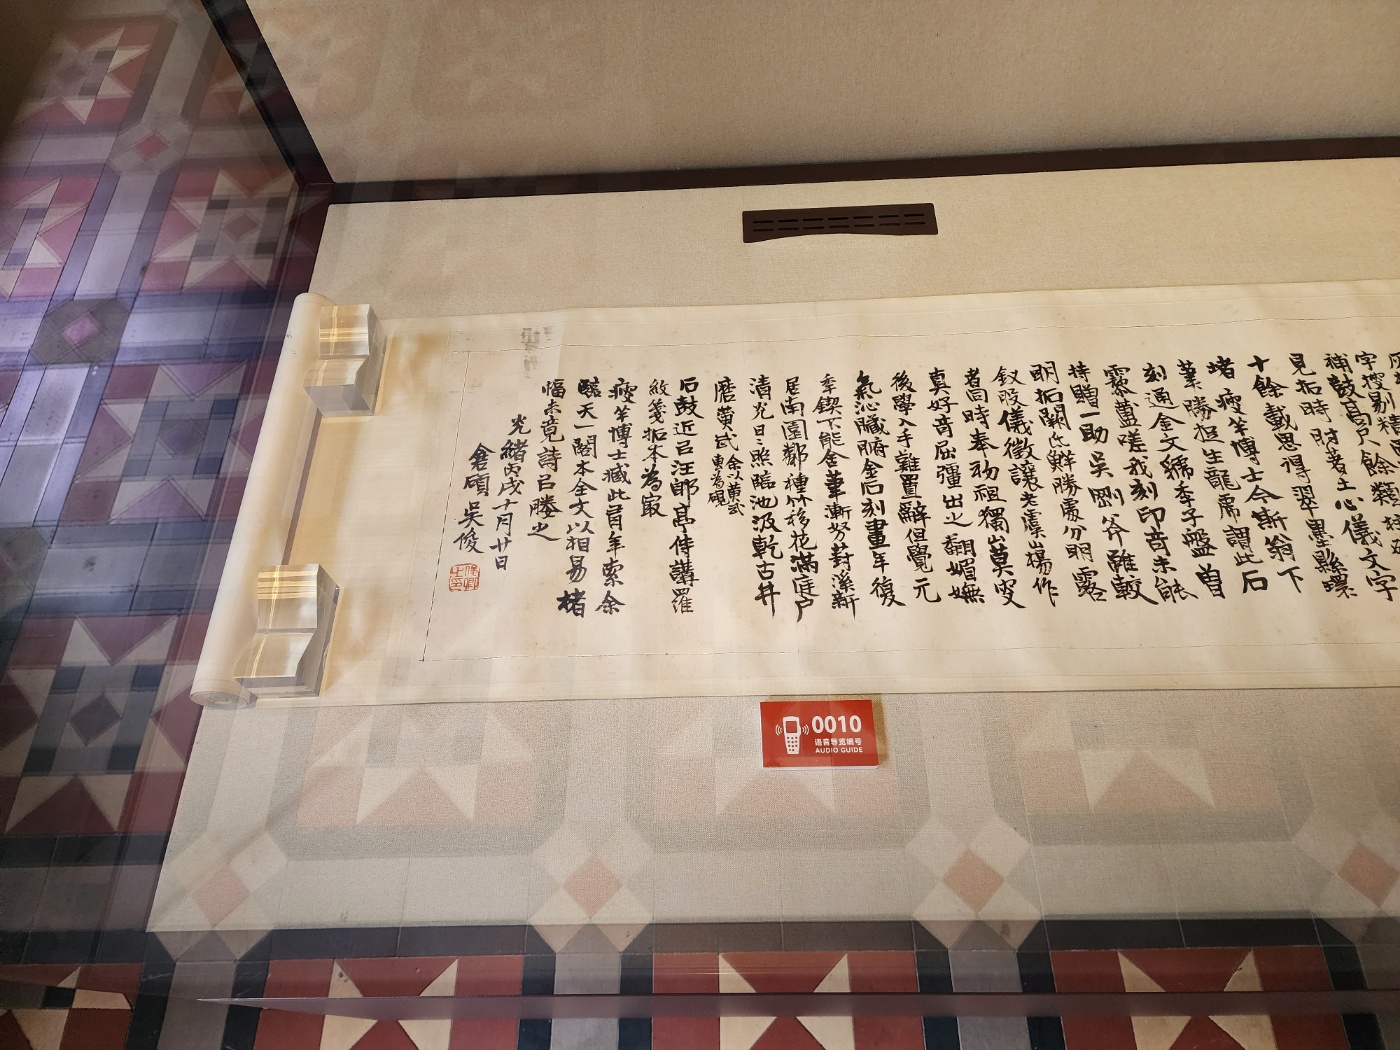 字搜剔精
補鼓高尺餘類
見拓時財者土心儀文字
十餘載思得翠墨懸環
堵瘦羊博士今斯翁下
筆勝扛生龍席謂此石
刻通金文稱季子盤曽
霧蓋嗟我刻印音未能
持贈一助吳剛斧雖較
明拓闕氏鮮勝處分明露
釵股儀徵讓老虞山楊作
者同時奉初祖獨山莫叟
真好奇屈彊出之翻媚嫵
後學入手難置辭但覺元
氣沁臟腑金石刻畫年復
年鍥不能舍筆漸努葑溪新
居南園鄰種竹移花滿庭戶
清光日日照臨池汲乾古井
磨黃武 余以黃武專為硯
石鼓近吕汪郋亭侍講羅
紋箋拓本為冣
瘦羊博士藏此百年索余
臨天一閣本全文以相易楮
幅未竟詩吕賸之
光緒丙戌十月廿日
倉碩吳俊
0010
语音导览编号
AUDIO GUIDE